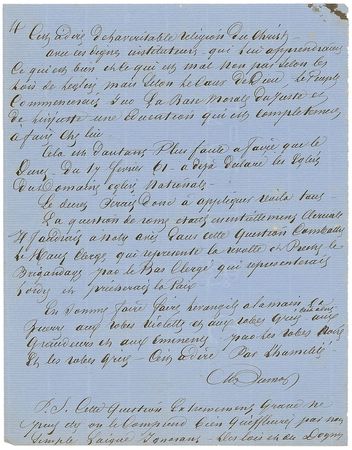 4 C'est à dire de la véritable religion du Christ
avec ces dignes instituteurs - qui lui apprendraient
Ce qui est bien et ce qui est mal non pas selon les
lois de l'église mais selon les lois de Dieu, le Peuple
Commencerait Sur la Base Morale du Juste et
de l'injuste - une éducation qui est complètement
à faire chez lui
Cela est d'autant Plus facile à faire que le
Decret du 17 fevrier 61 - a déjà déclaré les Eglises
du Domaine églises Nationales -
Le decret serait donc à appliquer voilà tout
La question de Rome étant éternellement
il faudrait à mon avis dans cette Question Combattre
le Haut Clergé, qui représente la révolte et Prêche le
Brigandage par le Bas Clergé qui représenterait
l'ordre et prêcherait la Paix
En Somme faire faire l'évangile à la main la
guerre aux robes violettes et aux robes rouges aux
Grandeurs et aux éminences par les robes Noires
et les robes grises - C'est à dire Par l'humilité
Alex Dumas
P.S. Cette Question Extrèmement Grave ne
peut du on le Comprend bien être par un
Simple laïque Ignorant - Les lois et du Dogme